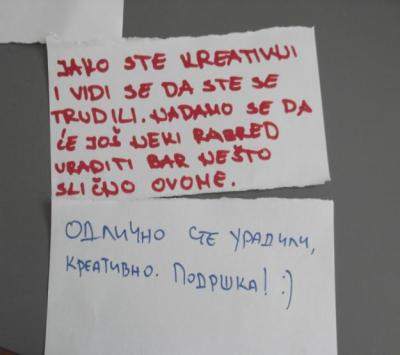 JAKO STE KREATIVNI
I VIDI SE DA STE SE
TRUDILI. NADAMO SE DA
ĆE JOŠ NEKI RAZRED
URADITI BAR NEŠTO
SLIČNO OVOME.
ОДЛИЧНО СТЕ УРАДИЛИ,
КРЕАТИВНО. ПОДРШКА! :)